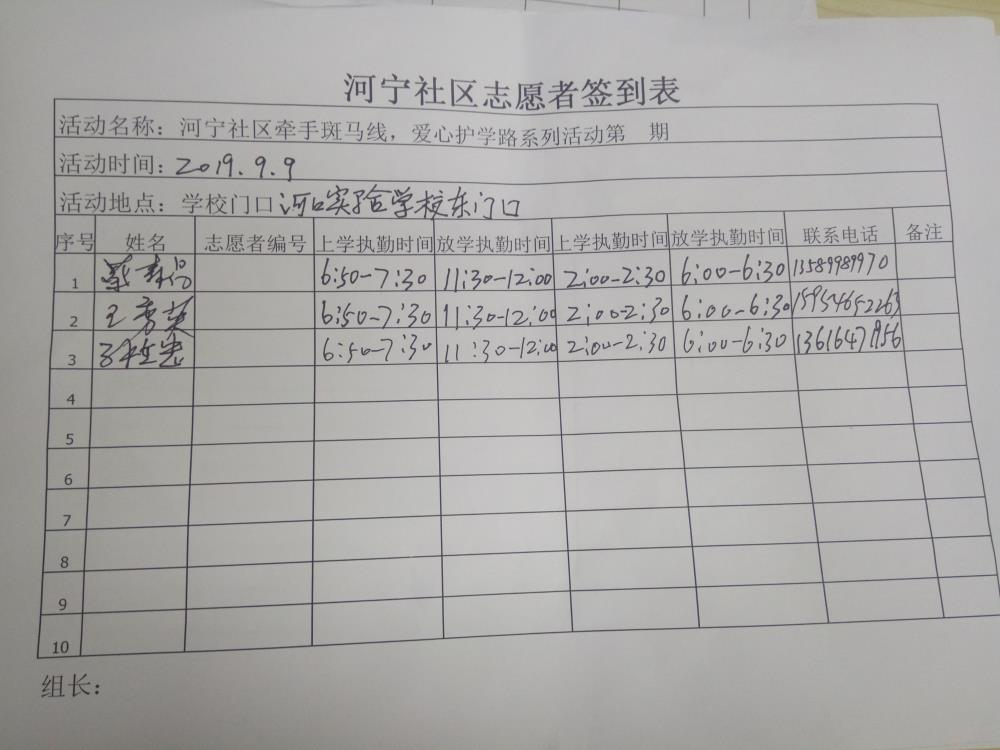 河宁社区志愿者签到表
活动名称：河宁社区牵手斑马线，爱心护学路系列活动第 期
活动时间：2019.9.9
活动地点：学校门口河口实验学校东门口
序号 姓名 志愿者编号 上学执勤时间 放学执勤时间 上学执勤时间 放学执勤时间 联系电话 备注
1 6:50-7:30 11:30-12:00 2:00-2:30 6:00-6:30 13589989970
2 王秀英 6:50-7:30 11:30-12:00 2:00-2:30 6:00-6:30 15954652263
3 6:50-7:30 11:30-12:00 2:00-2:30 6:00-6:30 13616471956
4
5
6
7
8
9
10
组长：